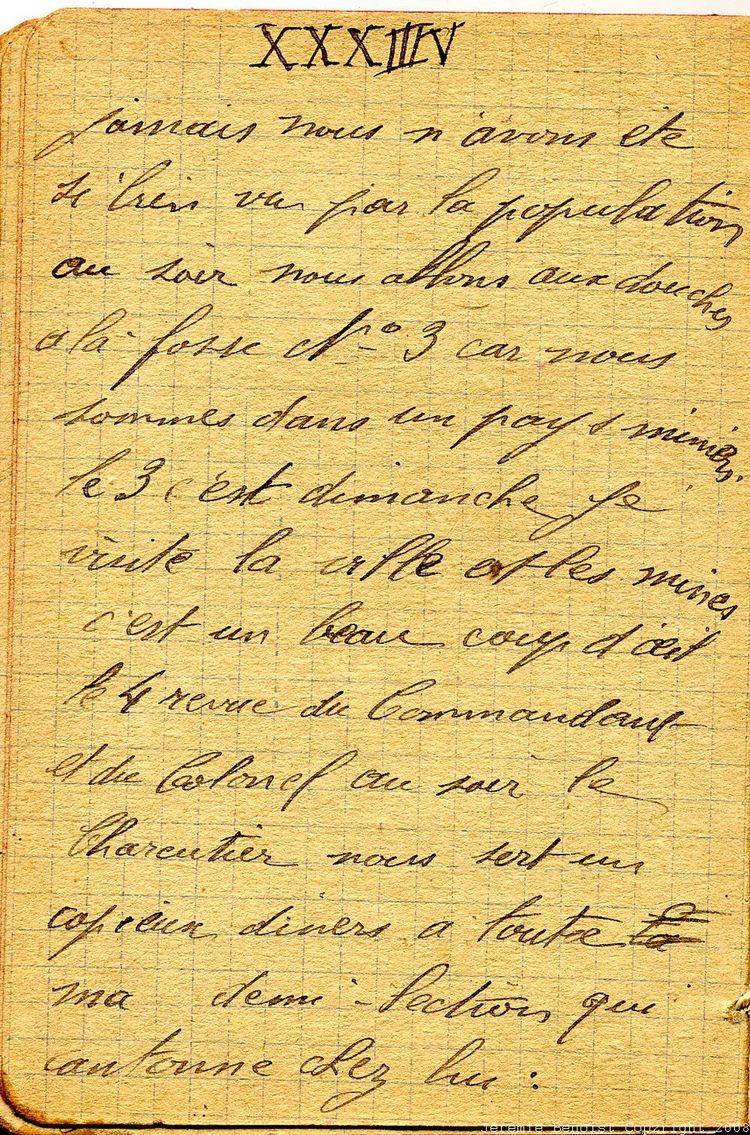 XXXIIIV
jamais nous n'avons éte
si bien vu par la population
au soir nous allons aux douches
a la fosse N° 3 car nous
sommes dans un pays miniers.
le 3 c'est dimanche je
visite la ville et les mines
c'est un beau coup d'œil
le 4 revue du Commandant
et du Colonel au soir le
Charcutier nous sert un
copieux diners a toute la
ma demi-Section qui
cantonne chez lui :
Jeremie Benoist Copyright 2008